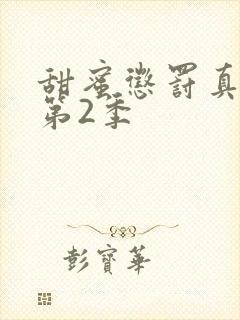 甜蜜懲罰真
第2季
彭寶華